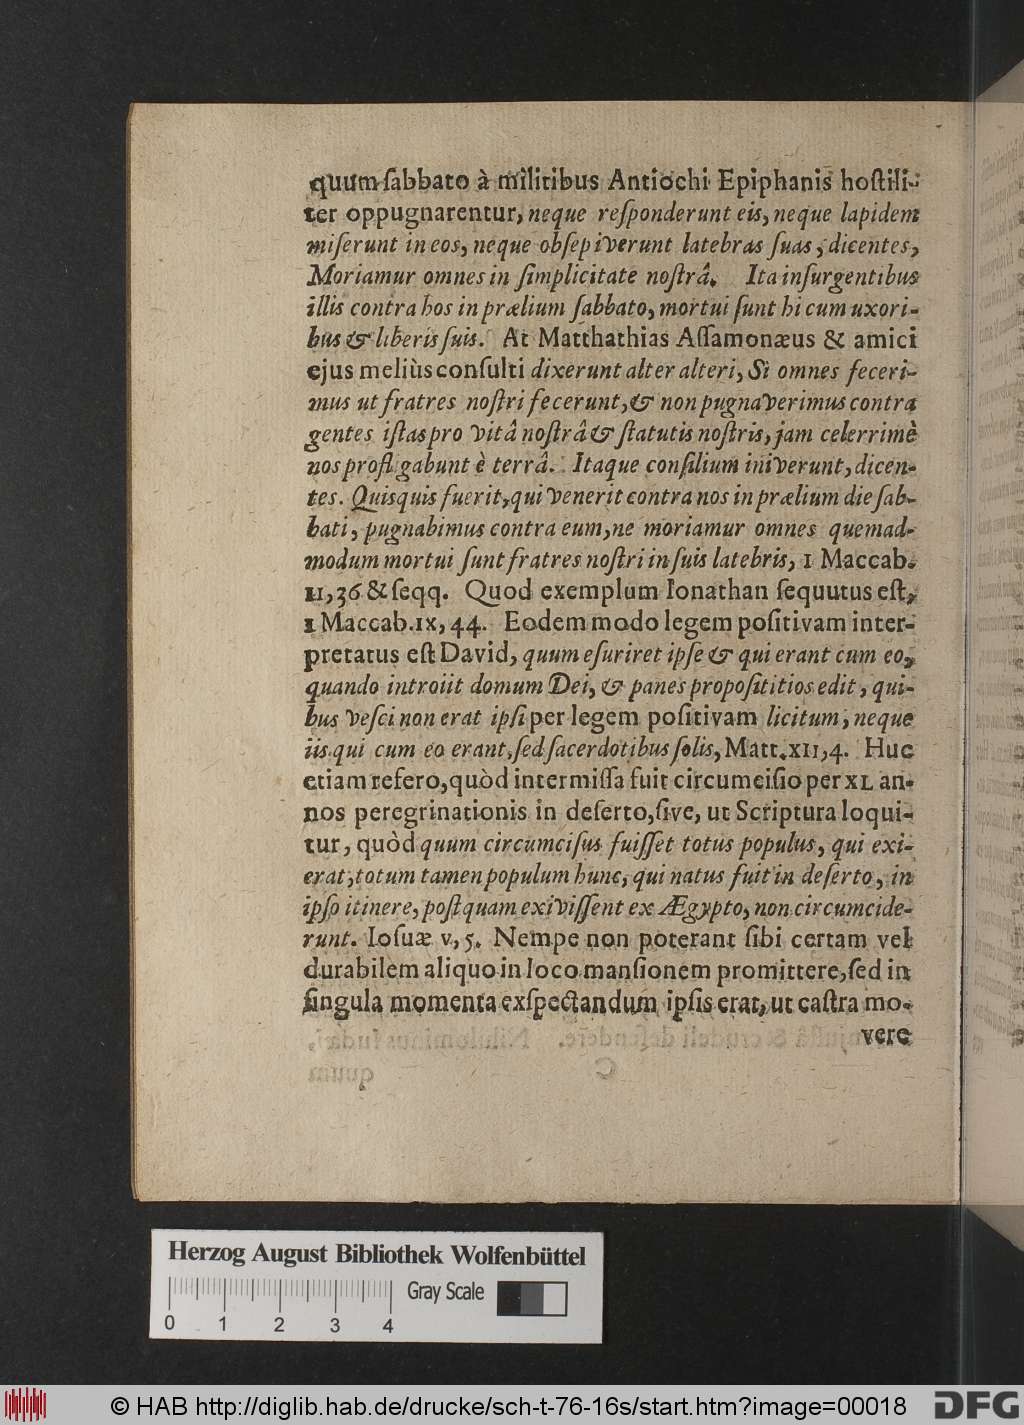 quum ſabbato à militibus Antiochi Epiphanis hoſtili-
ter oppugnarentur, neque reſponderunt eis, neque lapidem
miſerunt in eos, neque obſepiverunt latebras ſuas, dicentes,
Moriamur omnes in ſimplicitate noſtrâ. Ita inſurgentibus
illis contra hos in prælium ſabbato, mortui ſunt hi cum uxori-
bus & liberis ſuis. At Matthathias Aſſamonæus & amici
ejus meliùs conſulti dixerunt alter alteri, Si omnes feceri-
mus ut fratres noſtri fecerunt, & non pugnaverimus contra
gentes iſtas pro vitâ noſtrâ & ſtatutis noſtris, jam celerrimè
nos profligabunt è terrâ. Itaque conſilium iniverunt, dicen-
tes. Quisquis fuerit, qui venerit contra nos in prælium die ſab-
bati, pugnabimus contra eum, ne moriamur omnes quemad-
modum mortui ſunt fratres noſtri in ſuis latebris, 1 Maccab.
II, 36 & ſeqq. Quod exemplum Ionathan ſequutus eſt,
1 Maccab. IX, 44. Eodem modo legem poſitivam inter-
pretatus eſt David, quum eſuriret ipſe & qui erant cum eo,
quando introiit domum Dei, & panes propoſititios edit, qui-
bus veſci non erat ipſi per legem poſitivam licitum, neque
iis qui cum eo erant, ſed ſacerdotibus ſolis, Matt. XII, 4. Huc
etiam refero, quòd intermiſſa fuit circumciſio per XL an-
nos peregrinationis in deſerto, ſive, ut Scriptura loqui-
tur, quòd quum circumciſus fuiſſet totus populus, qui exi-
erat, totum tamen populum hunc, qui natus fuit in deſerto, in
ipſo itinere, poſtquam exiviſſent ex Ægypto, non circumcide-
runt. Ioſuæ V, 5. Nempe non poterant ſibi certam vel
durabilem aliquo in loco manſionem promittere, ſed in
ſingula momenta exſpectandum ipſis erat, ut caſtra mo-
vere
Herzog August Bibliothek Wolfenbüttel
Gray Scale
0 1 2 3 4
© HAB http://diglib.hab.de/drucke/sch-t-76-16s/start.htm?image=00018
DFG